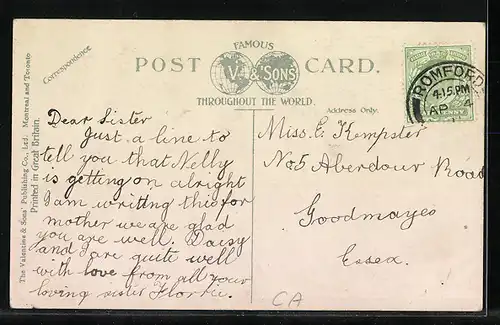 FAMOUS
POST CARD.
V. & SONS
THROUGHOUT THE WORLD.
Correspondence
Address Only.
The Valentine & Sons' Publishing Co., Ltd. Montreal and Toronto
Printed in Great Britain.
Dear Sister
Just a line to
tell you that Nelly
is getting on alright
I am writing this for
mother we are glad
you are well. Daisy
and I are quite well
with love from all your
loving sister Florrie.
ROMFORD
4.15 PM
AP 4
Miss. E Kempster
No 5 Aberdour Road
Goodmayes
Essex.
CA